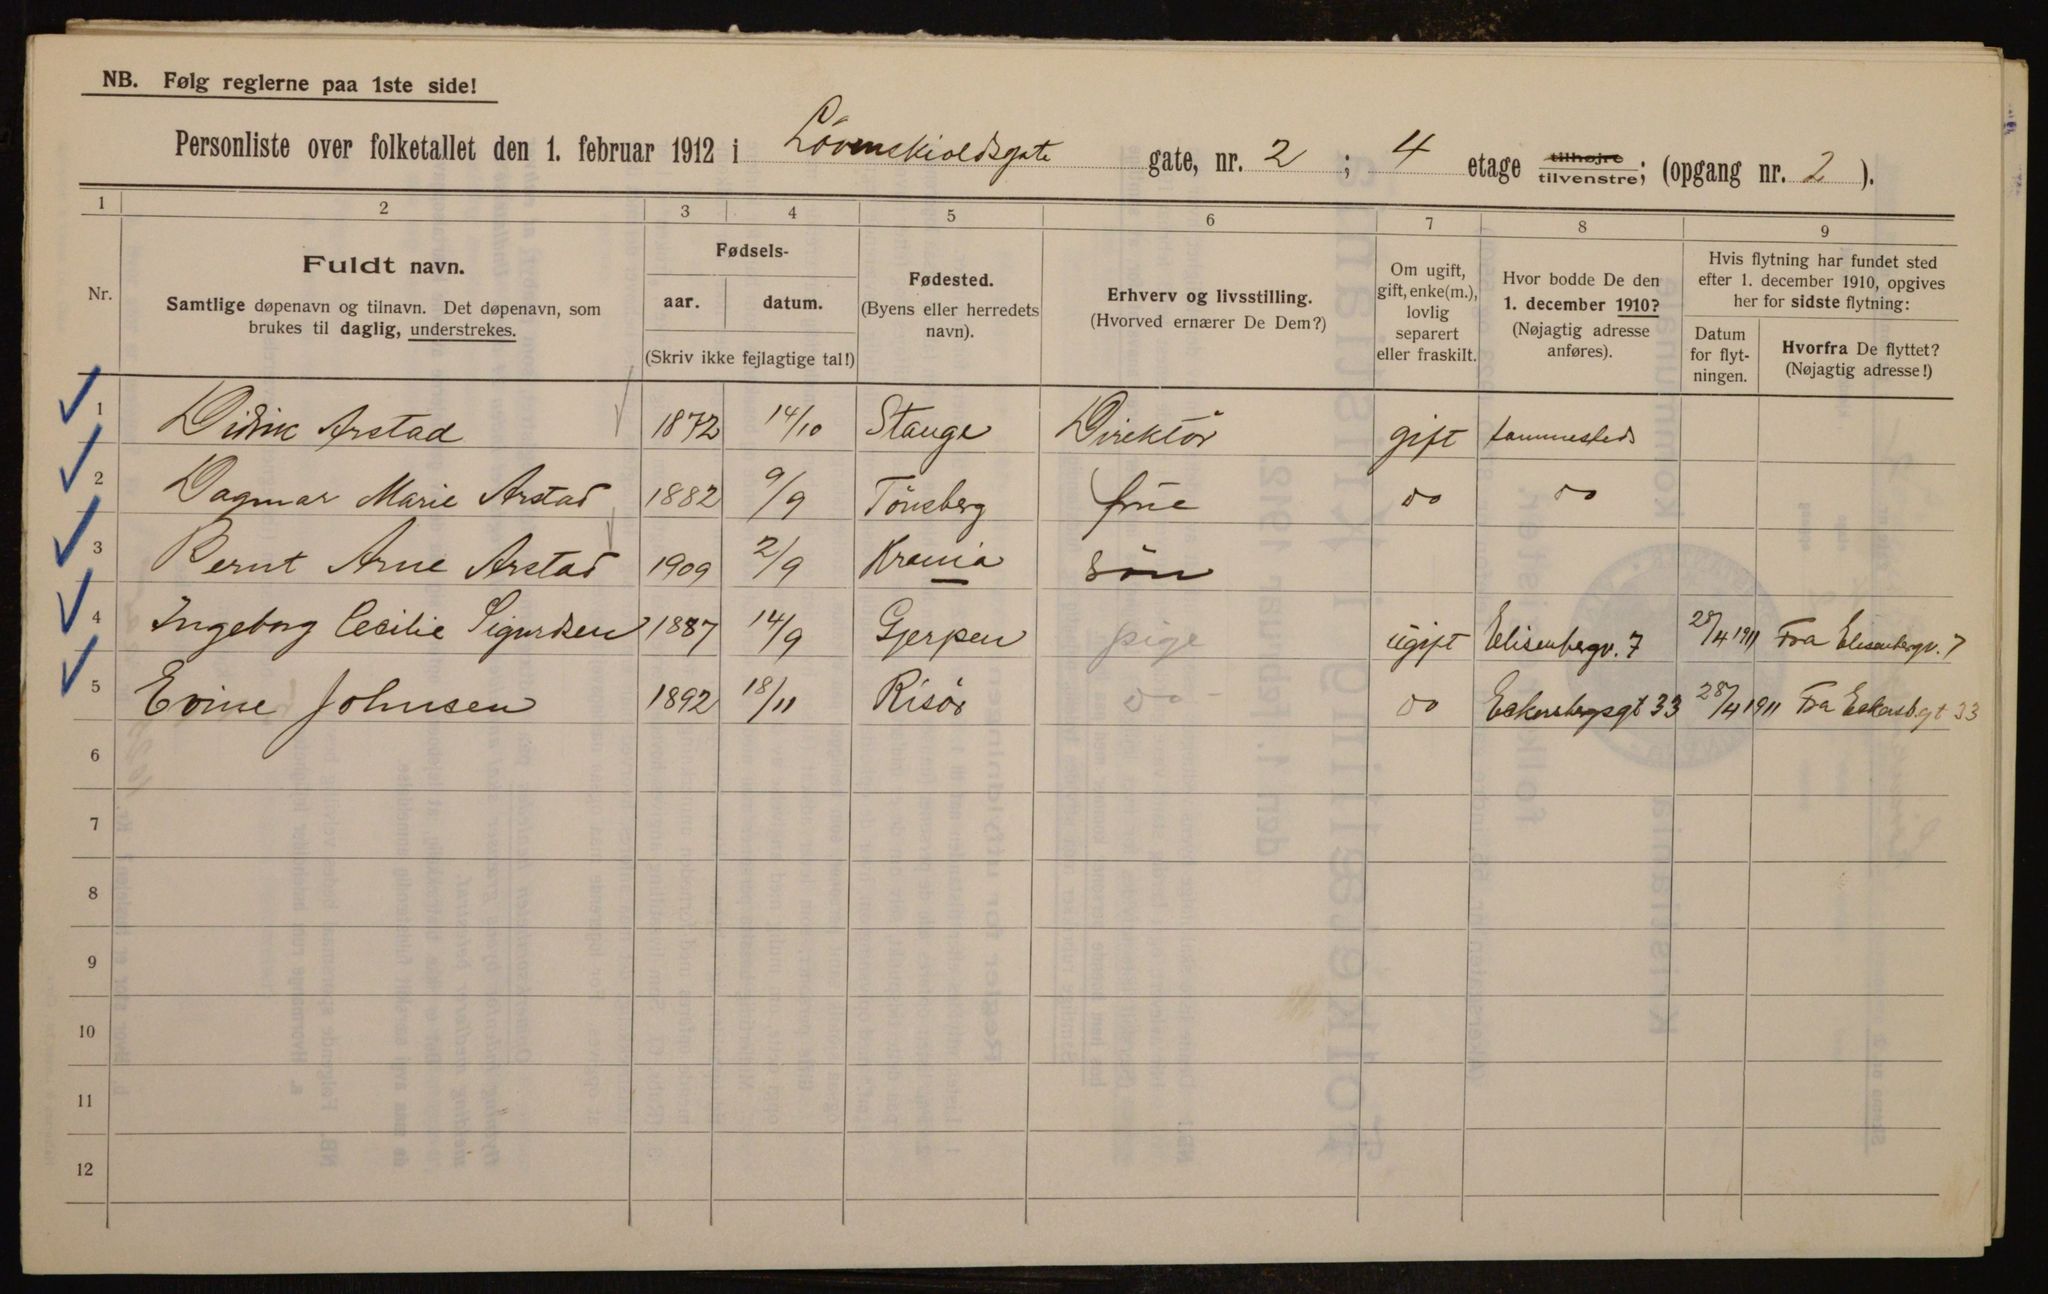 NB. Følg reglerne paa 1ste side!
Personliste over folketallet den 1. februar 1912 i Løvenskioldsgate gate, nr. 2 ; 4 etage tilhøjre tilvenstre; (opgang nr. 2 ).
1 2 3 4 5 6 7 8 9
Nr.
Fuldt navn.
Samtlige døpenavn og tilnavn. Det døpenavn, som
brukes til daglig, understrekes.
Fødsels-
aar. datum.
(Skriv ikke fejlagtige tal!)
Fødested.
(Byens eller herredets
navn).
Erhverv og livsstilling.
(Hvorved ernærer De Dem?)
Om ugift,
gift, enke(m.),
lovlig
separert
eller fraskilt.
Hvor bodde De den
1. december 1910?
(Nøjagtig adresse
anføres).
Hvis flytning har fundet sted
efter 1. december 1910, opgives
her for sidste flytning:
Datum
for flyt-
ningen.
Hvorfra De flyttet?
(Nøjagtig adresse!)
1 Didrik Arstad 1872 14/10 Stange Direktör gift sammesteds
2 Dagmar Marie Arstad 1882 9/9 Tönsberg frue do do
3 Bernt Arne Arstad 1909 2/9 Krania Sön
4 Ingeborg Cecilie Sigurdsen 1887 14/9 Gjerpen pige ugift Elisenbergv. 7 28/4 1911 Fra Elisenbergv. 7
5 Evine Johnsen 1892 18/11 Risör do do Eckersbergsgt 33 28/4 1911 Fra Eckersb.gt 33
6
7
8
9
10
11
12